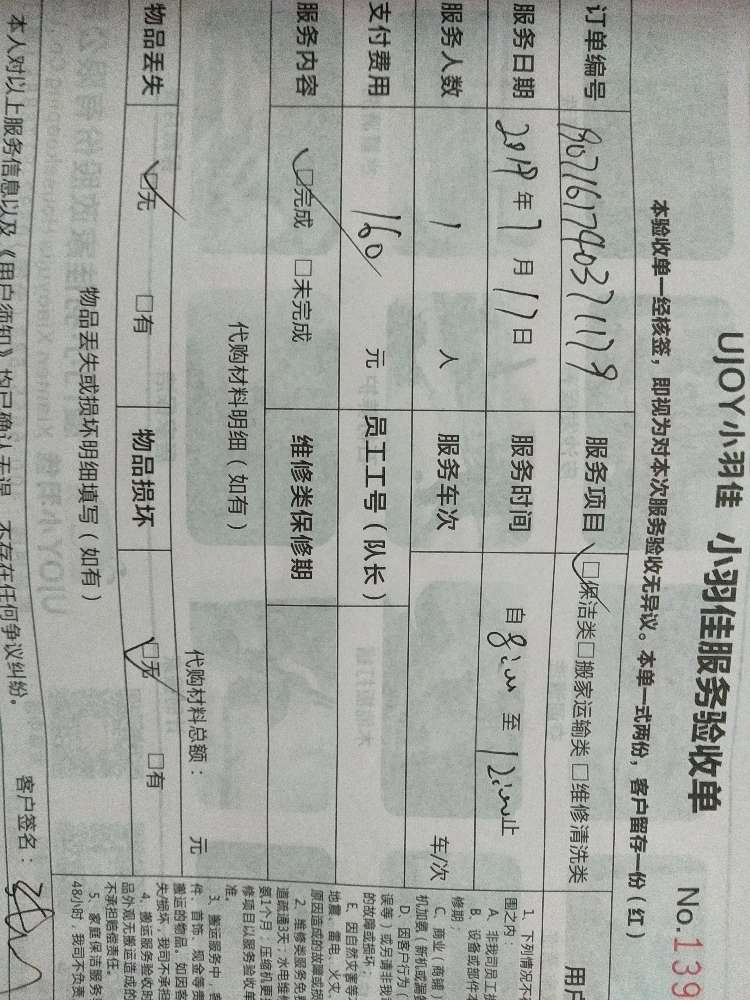 UJOY小羽佳 小羽佳服务验收单
No.139
本验收单一经核签，即视为对本次服务验收无异议。本单一式两份，客户留存一份（红）
订单编号 服务项目 □保洁类□搬家运输类□维修清洗类
服务日期 2019年7月17日 服务时间 自 8:00 至 12:00止
服务人数 1 人 服务车次 车/次
支付费用 160 元 员工工号（队长）
服务内容 □完成 □未完成 维修类保修期
代购材料明细（如有） 代购材料总额： 元
物品丢失 □无 □有 物品损坏 □无 □有
物品丢失或损坏明细填写（如有）
本人对以上服务信息以及《用户须知》均已确认无误，不存在任何争议纠纷。
客户签名：
用户
1、下列情况不
围之内：
A、非我司员工
B、设备或部件本
修期；
C、商业（商铺
机加氨，新机或漏氨
D、因客户行为（
误等）或另请非我
的故障或损坏；
E、因自然灾害等
地震、雷电、火灾、
原因造成的故障或损
2、维修类服务免费
道疏通3天，水电维修
氨1个月；压缩机更
修项目以服务验收单
准。
3、搬运服务中，客
件、首饰、现金等贵
搬运的物品。如因客
失/损坏，我司不承担
4、搬运服务验收时
品外观无搬运造成的
不承担赔偿责任。
5、家庭保洁服务
48小时，我司不负责